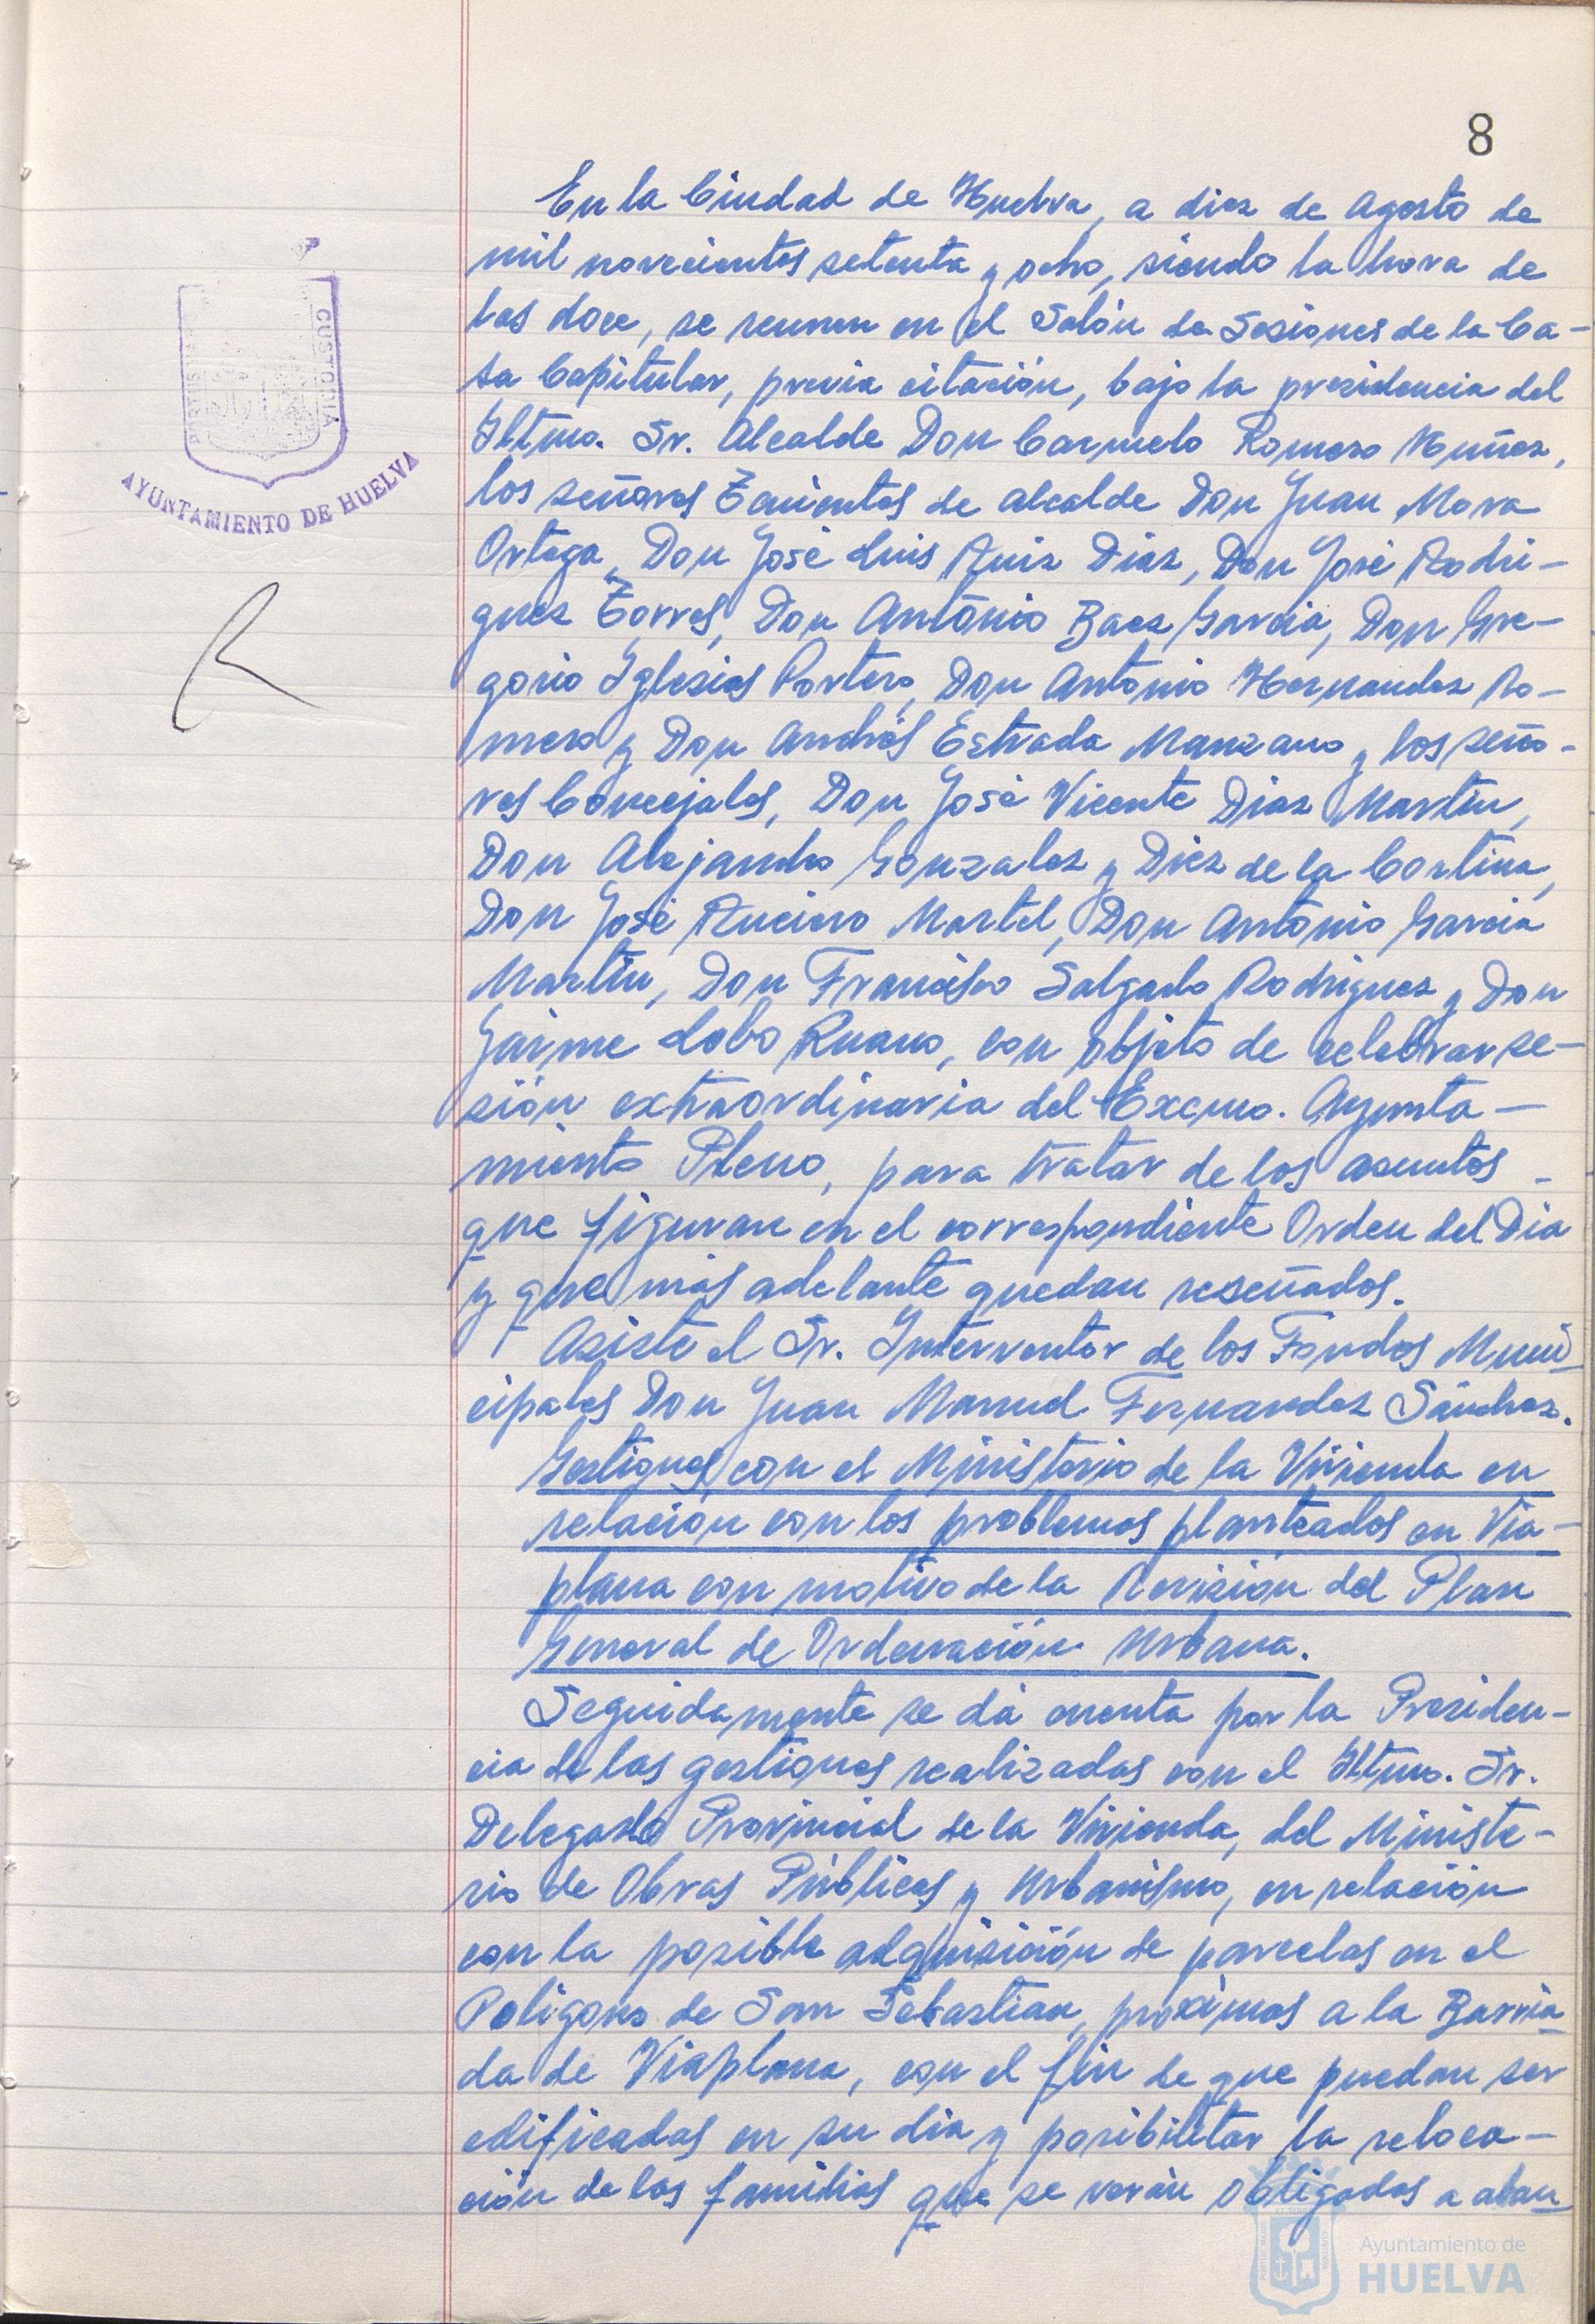 8
En la Ciudad de Huelva, a diez de Agosto de
mil novecientos setenta y ocho, siendo la hora de
las doce, se reunen en el Salón de Sesiones de la Ca-
sa Capitular, previa citación, bajo la presidencia del
Iltmo. Sr. Alcalde Don Carmelo Romero Nuñez,
los señores Tenientes de alcalde Don Juan Mora
Ortega, Don José Luis Ruiz Diaz, Don José Rodri-
guez Torres, Don Antonio Baez Garcia, Don Gre-
gorio Iglesias Portero, Don Antonio Hernandez Ro-
mero y Don Andrés Estrada Manzano y los seño-
res Concejales, Don José Vicente Diaz Martin,
Don Alejandro Gonzalez y Diez de la Cortina,
Don José Ruciero Martel, Don Antonio Garcia
Martin, Don Francisco Salgado Rodriguez y Don
Jaime Lobo Ruano, con objeto de celebrar se-
sión extraordinaria del Excmo. Ayunta-
miento Pleno, para tratar de los asuntos -
que figuran en el correspondiente Orden del Dia
y que más adelante quedan reseñados.
Asiste el Sr. Interventor de los Fondos Muni
cipales Don Juan Manuel Fernandez Sánchez.
Gestiones con el Ministerio de la Vivienda en
relación con los problemas planteados en Via-
plana con motivo de la Revisión del Plan
General de Ordenación Urbana.
Seguidamente se dá cuenta por la Presiden-
cia de las gestiones realizadas con el Iltmo. Sr.
Delegado Provincial de la Vivienda, del Ministe-
rio de Obras Públicas y Urbanismo, en relación
con la posible adquisición de parcelas en el
Poligono de San Sebastian, proximas a la Barria
da de Viaplana, con el fin de que puedan ser
edificadas en su dia y posibilitar la reloca-
ción de las familias que se verán obligadas a aban
CUSTODIA
AYUNTAMIENTO DE HUELVA
Ayuntamiento de
HUELVA